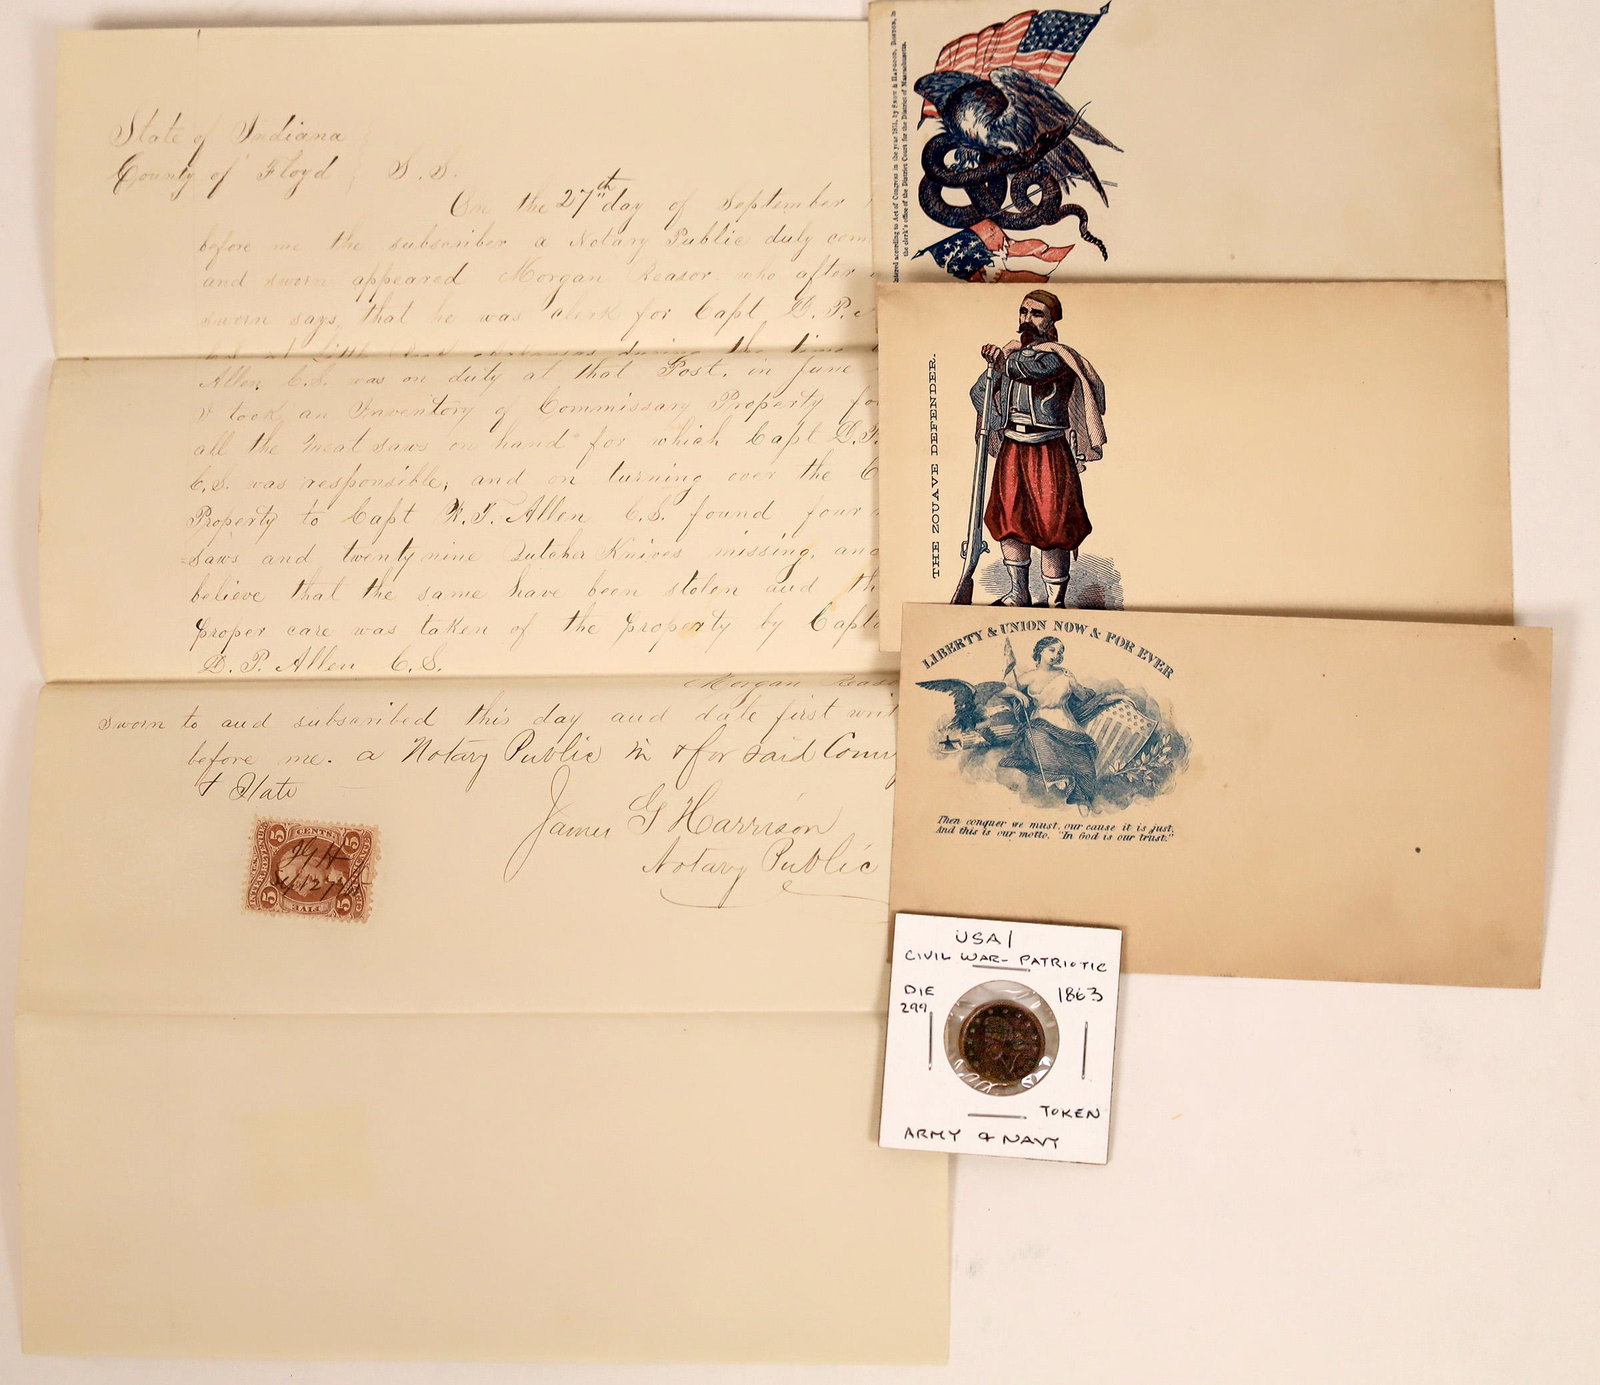 State of Indiana
County of Floyd S.S.
On the 27th day of September
before me the subscriber a Notary Public duly com
and sworn appeared Morgan Reasor who after
sworn says, that he was clerk for Capt D. P.
C.S. at Little Rock Arkansas during the time
Allen C.S. was on duty at that Post, in June
I took an Inventory of Commissary Property for
all the meat saws on hand for which Capt D.P.
C.S. was responsible, and on turning over the C
Property to Capt Allen C.S. found four
saws and twenty nine Butcher Knives missing, and
believe that the same have been stolen and th
proper care was taken of the property by Capta
D. P. Allen C.S.
Morgan Reaso
Sworn to and subscribed this day and date first writ
before me. a Notary Public in & for said County
& State
James G Harrison
Notary Public
5 CENTS 5
INTER. REVENUE
CERTIFICATE
5 FIVE 5
JGH
Sep 27
tered according to Act of Congress in the year 1861, by SNOW & HAPGOOD, BOSTON, in
the clerk's office of the District Court for the District of Massachusetts.
THE ZOUAVE DEFENDER.
LIBERTY & UNION NOW & FOR EVER
Then conquer we must, our cause it is just,
And this is our motto. "In God is our trust."
USA/
CIVIL WAR - PATRIOTIC
DIE 1863
299
TOKEN
ARMY & NAVY